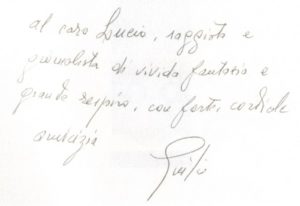 al caro Lucio, saggista e
giornalista di vivida fantasia e
grande respiro, con forte, cordiale
amicizia